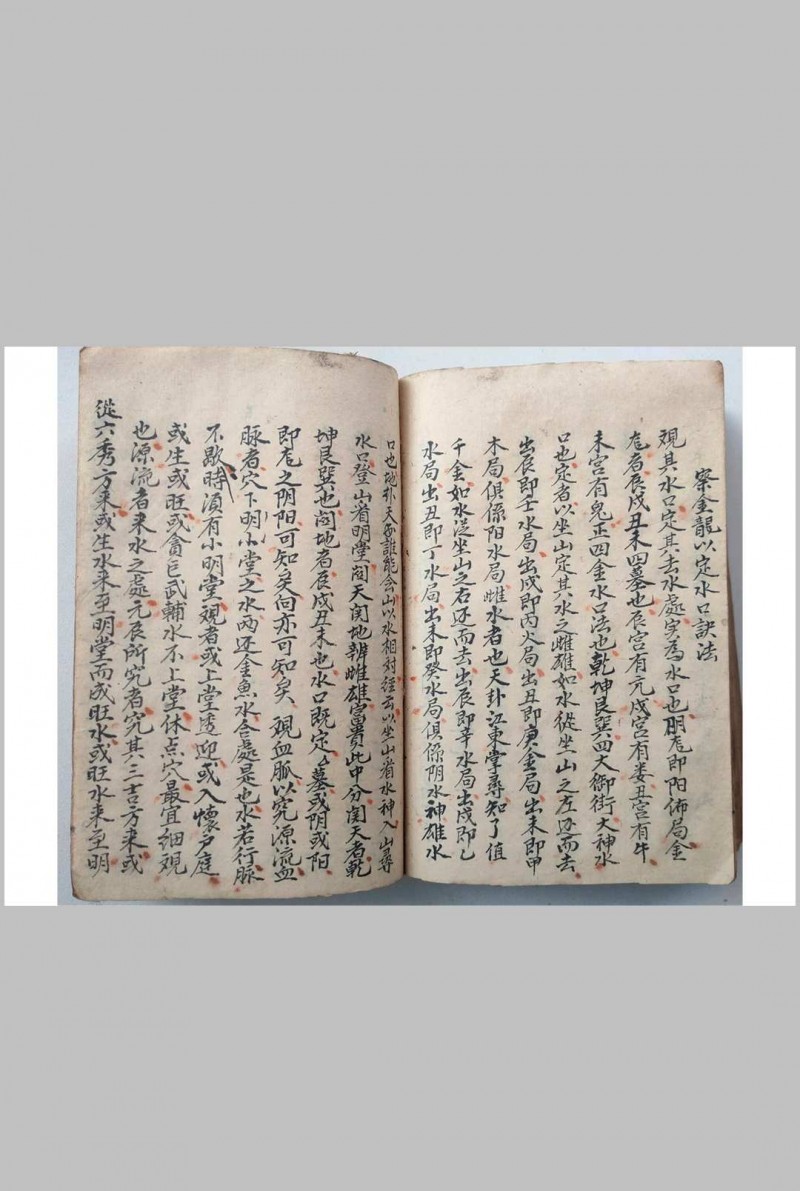 察金龍以定水口訣法
观其水口定其去水處実為水口也明龙即阳佈局金
龙者辰戌丑未四墓也辰宫有亢戍宫有娄丑宫有牛
未宫有鬼正四金水口法也乾坤艮巽四大御街大神水
口也定者以坐山定其水之雌雄如水從坐山之左还而去
出辰即壬水局出戍即丙火局出丑即庚金局出未即甲
木局俱係阳水局雌水者也天卦江東掌尋知了值
千金如水從坐山之右还而去出辰即辛水局出戍即乙
水局出丑即丁水局出未即癸水局俱係阴水神雄水
口也地卦天 誰能会山以水相对經云以坐山省水神入山尋
水口登山省明堂関天関地辨雌雄富貴此中分関天者乾
坤艮巽也関地者辰戍丑未也水口既定墓或阴或阳
即龙之阴阳可知矣向亦可知矣 观血脈以究源流血
脉者穴下明小堂之水两还金魚水合處是也水若行脉
不歇時須有小明堂观者或上堂透迎或入懷戶庭
或生或旺或貪巨武輔水不上堂休点穴最宜細观
也源流者来水之處元辰所究者究其三吉方来或
從六秀方来或生水来至明堂而成旺水或旺水来至明